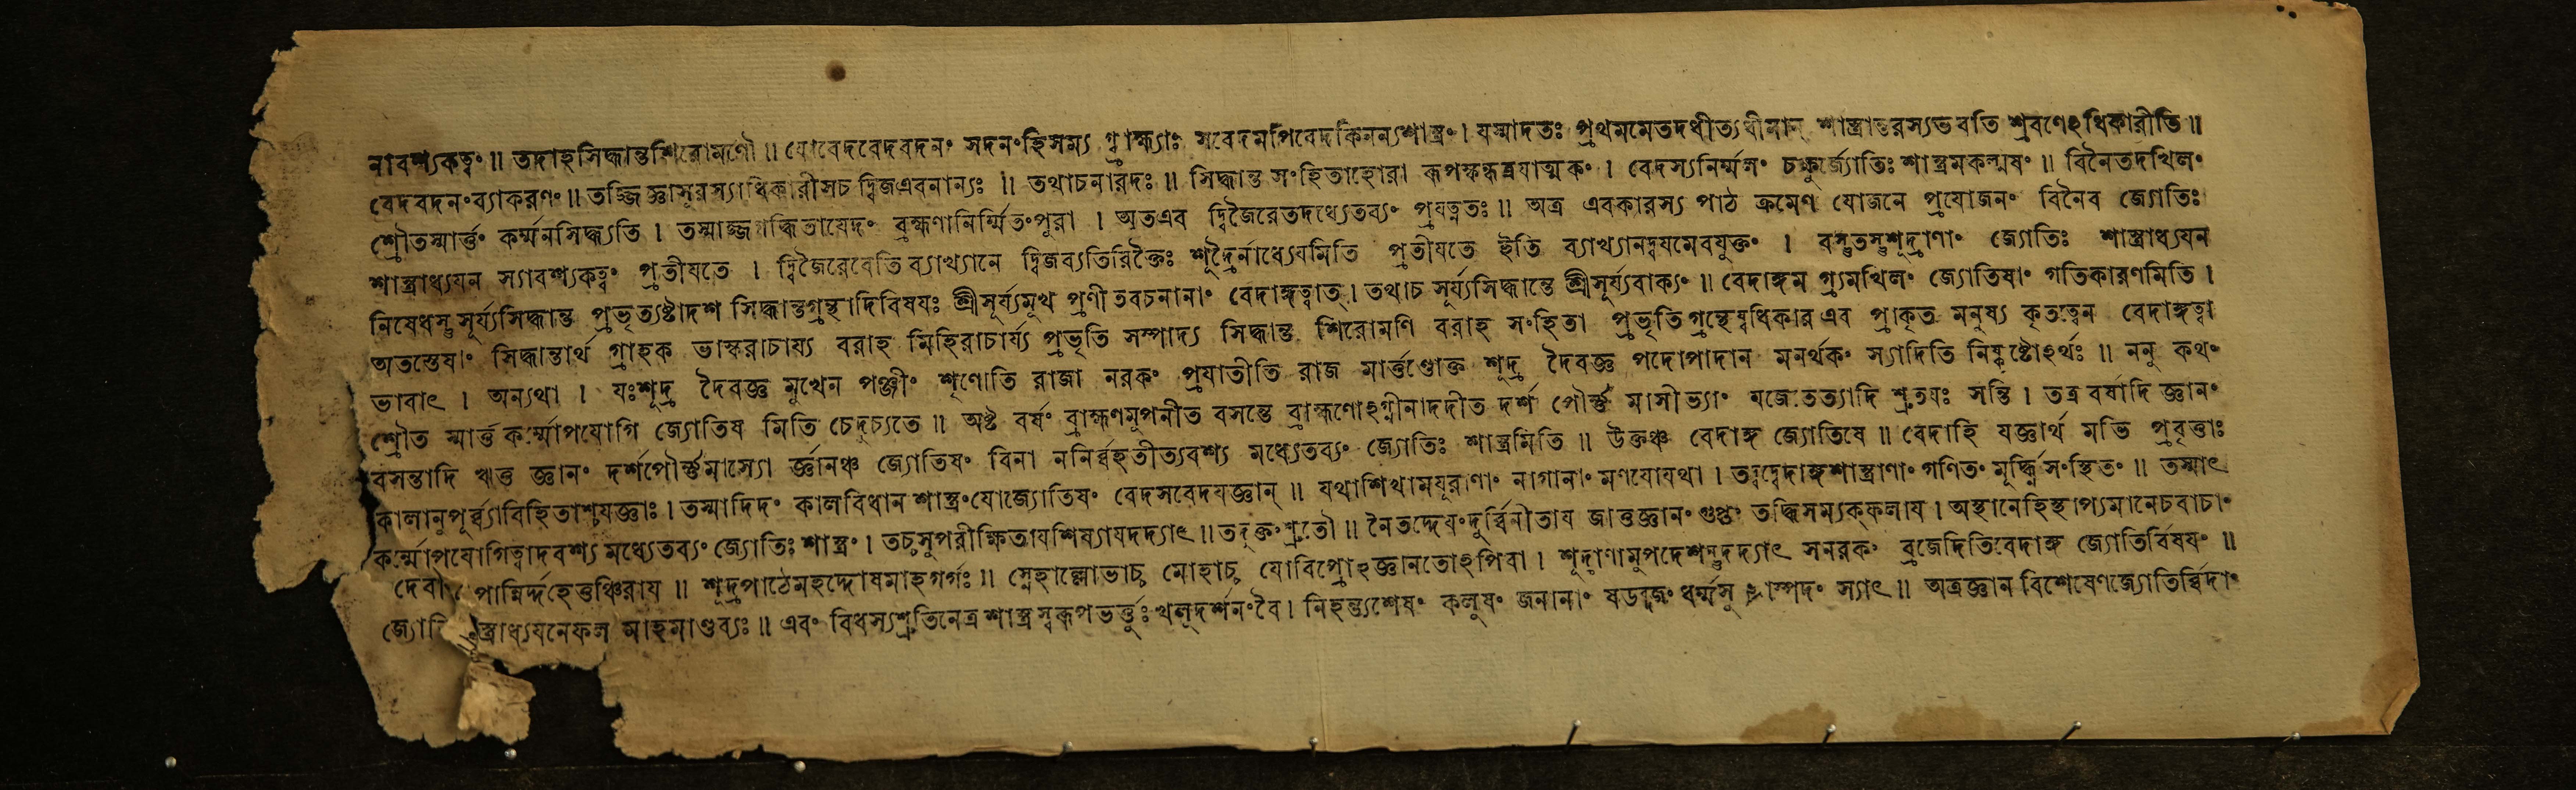 নাবশ্যকত্বং ॥ তদাহসিদ্ধান্তশিরোমণৌ ॥ যোবেদবেদবদনং সদনংহিসম্য গ্ব্রাহ্ম্যাঃ সবেদমপিবেদকিমন্যশাস্ত্রং । যস্মাদতঃ প্রথমমেতদধীত্যধীমান্ শাস্ত্রান্তরস্যভবতি শ্রবণেঽধিকারীতি ॥
বেদবদনংব্যাকরণং ॥ তজ্জিজ্ঞাসুরস্যাধিকারীসচ দ্বিজএবনান্যঃ ॥ তথাচনারদঃ ॥ সিদ্ধান্ত সংহিতাহোরা রূপস্কন্ধত্রয়াত্মকং । বেদস্যনির্ম্মলং চক্ষুর্জ্যোতিঃ শাস্ত্রমকল্মষং ॥ বিনৈতদখিলং
শ্রৌতস্মার্ত্তং কর্ম্মনসিদ্ধ্যতি । তস্মাজ্জগদ্ধিতাযেদং ব্রহ্মণানির্ম্মিতংপুরা । অতএব দ্বিজৈরেতদধ্যেতব্যং প্রযত্নতঃ ॥ অত্র এবকারস্য পাঠ ক্রমেণ যোজনে প্রযোজনং বিনৈব জ্যোতিঃ
শাস্ত্রাধ্যযন স্যাবশ্যকত্বং প্রতীযতে । দ্বিজৈরেবেতি ব্যাখ্যানে দ্বিজব্যতিরিক্তৈঃ শূদ্রৈর্নাধ্যেযমিতি প্রতীযতে ইতি ব্যাখ্যানদ্বযমেবযুক্তং । বস্তুতস্তুশূদ্রাণাং জ্যোতিঃ শাস্ত্রাধ্যযন
নিষেধস্তুসূর্য্যসিদ্ধান্ত প্রভৃত্যষ্টাদশ সিদ্ধান্তগ্রন্থাদিবিষযঃ শ্রীসূর্য্যমুখ প্রণীতবচনানাং বেদাঙ্গত্বাত্ । তথাচ সূর্য্যসিদ্ধান্তে শ্রীসূর্য্যবাক্যং ॥ বেদাঙ্গম গ্র্যমখিলং জ্যোতিষাং গতিকারণমিতি ।
অতস্তেষাং সিদ্ধান্তার্থ গ্রাহক ভাস্করাচার্য্য বরাহ মিহিরাচার্য্য প্রভৃতি সম্পাদ্য সিদ্ধান্ত শিরোমণি বরাহ সংহিতা প্রভৃতি গ্রন্থেষ্বধিকার এব প্রাকৃত মনুষ্য কৃতত্বেন বেদাঙ্গত্বা
ভাবাৎ । অন্যথা । যঃশূদ্র দৈবজ্ঞ মুখেন পঞ্জীং শৃণোতি রাজা নরকং প্রযাতীতি রাজ মার্ত্তণ্ডোক্ত শূদ্র দৈবজ্ঞ পদোপাদান মনর্থকং স্যাদিতি নিষ্কৃষ্টোঽর্থঃ ॥ ননু কথং
শ্রৌত স্মার্ত্ত কর্ম্মোপযোগি জ্যোতিষ মিতি চেদুচ্যতে ॥ অষ্ট বর্ষং ব্রাহ্মণমুপনীত বসন্তে ব্রাহ্মণোঽগ্নীনাদদীত দর্শ পৌর্ণ্ণ মাসীভ্যাং যজেতেত্যাদি শ্রুতযঃ সন্তি । তত্র বর্ষাদি জ্ঞানং
বসন্তাদি ঋতু জ্ঞানং দর্শপৌর্ণ্ণমাস্যো র্জ্ঞানঞ্চ জ্যোতিষং বিনা ননির্ব্বহতীত্যবশ্য মধ্যেতব্যং জ্যোতিঃ শাস্ত্রমিতি ॥ উক্তঞ্চ বেদাঙ্গ জ্যোতিষে ॥ বেদাহি যজ্ঞার্থ মভি প্রবৃত্তাঃ
কালানুপূর্ব্ব্যাবিহিতাশ্চযজ্ঞাঃ । তস্মাদিদং কালবিধান শাস্ত্রংযোজ্যোতিষং বেদসবেদযজ্ঞান্ ॥ যথাশিখামযূরাণাং নাগানাং মণযোযথা । তদ্বদ্বেদাঙ্গশাস্ত্রাণাং গণিতং মূর্দ্ধ্নিসংস্থিতং ॥ তস্মাৎ
কর্ম্মোপযোগিত্বাদবশ্য মধ্যেতব্যং জ্যোতিঃ শাস্ত্রং । তচ্চসুপরীক্ষিতাযশিষ্যাযদদ্যাৎ ॥ তদুক্তংশ্রুতৌ ॥ নৈতদ্দেযংদুর্ব্বিনীতায জাতুজ্ঞানংগুপ্তং তদ্ধিসম্যক্ফলায । অস্থানেহিস্থাপ্যমানেচবাচাং
দেবী পান্নির্দ্দহেত্তুঞ্চিরায ॥ শূদ্রপাঠেমহদ্দোষমাহগর্গঃ ॥ স্নেহাল্লোভাচ্চ মোহাচ্চ যোবিপ্রোঽজ্ঞানতোঽপিবা । শূদ্রাণামুপদেশন্তুদদ্যাৎ সনরকং ব্রজেদিতিবেদাঙ্গ জ্যোতির্বিষযং ॥
জ্যোতি স্ত্রাধ্যযনেফল মাহমাণ্ডব্যঃ ॥ এবং বিধস্যশ্রুতিনেত্র শাস্ত্র স্বরূপভর্ত্তুঃ খলুদর্শনংবৈ । নিহন্ত্যশেষং কলুষং জনানাং ষডব্দজং ধর্ম্মসু স্পদং স্যাৎ ॥ অত্রজ্ঞান বিশেষেণজ্যোতির্ব্বিদাং